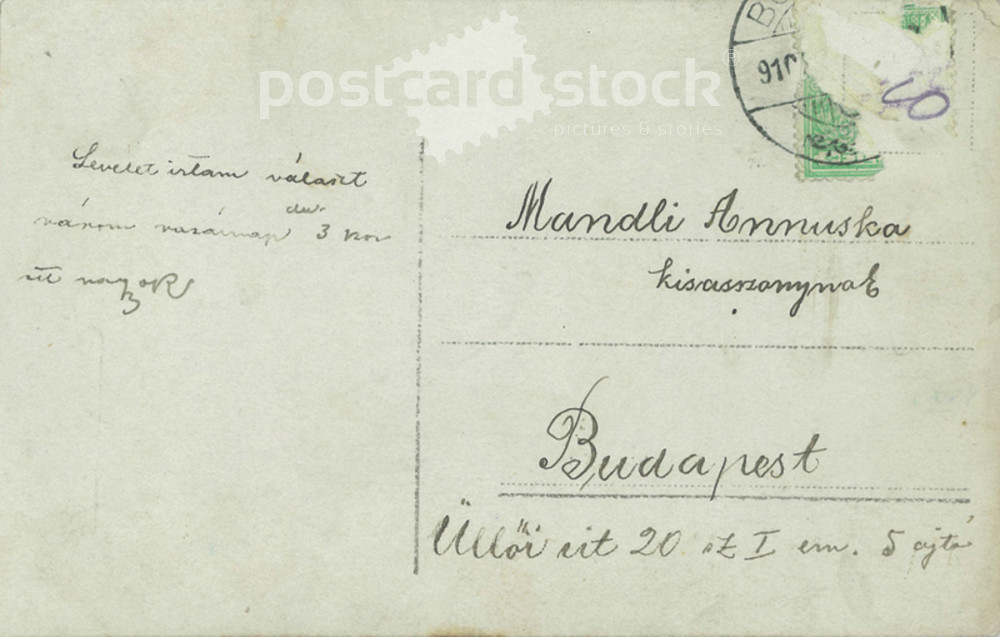 postcard stock
pictures & stories
910
Levelet irtam választ
várom vasárnap du. 3 kor
itt vagyok
Mandli Annuska
kisasszonynak
Budapest
Üllői út 20 sz I em. 5 ajtó